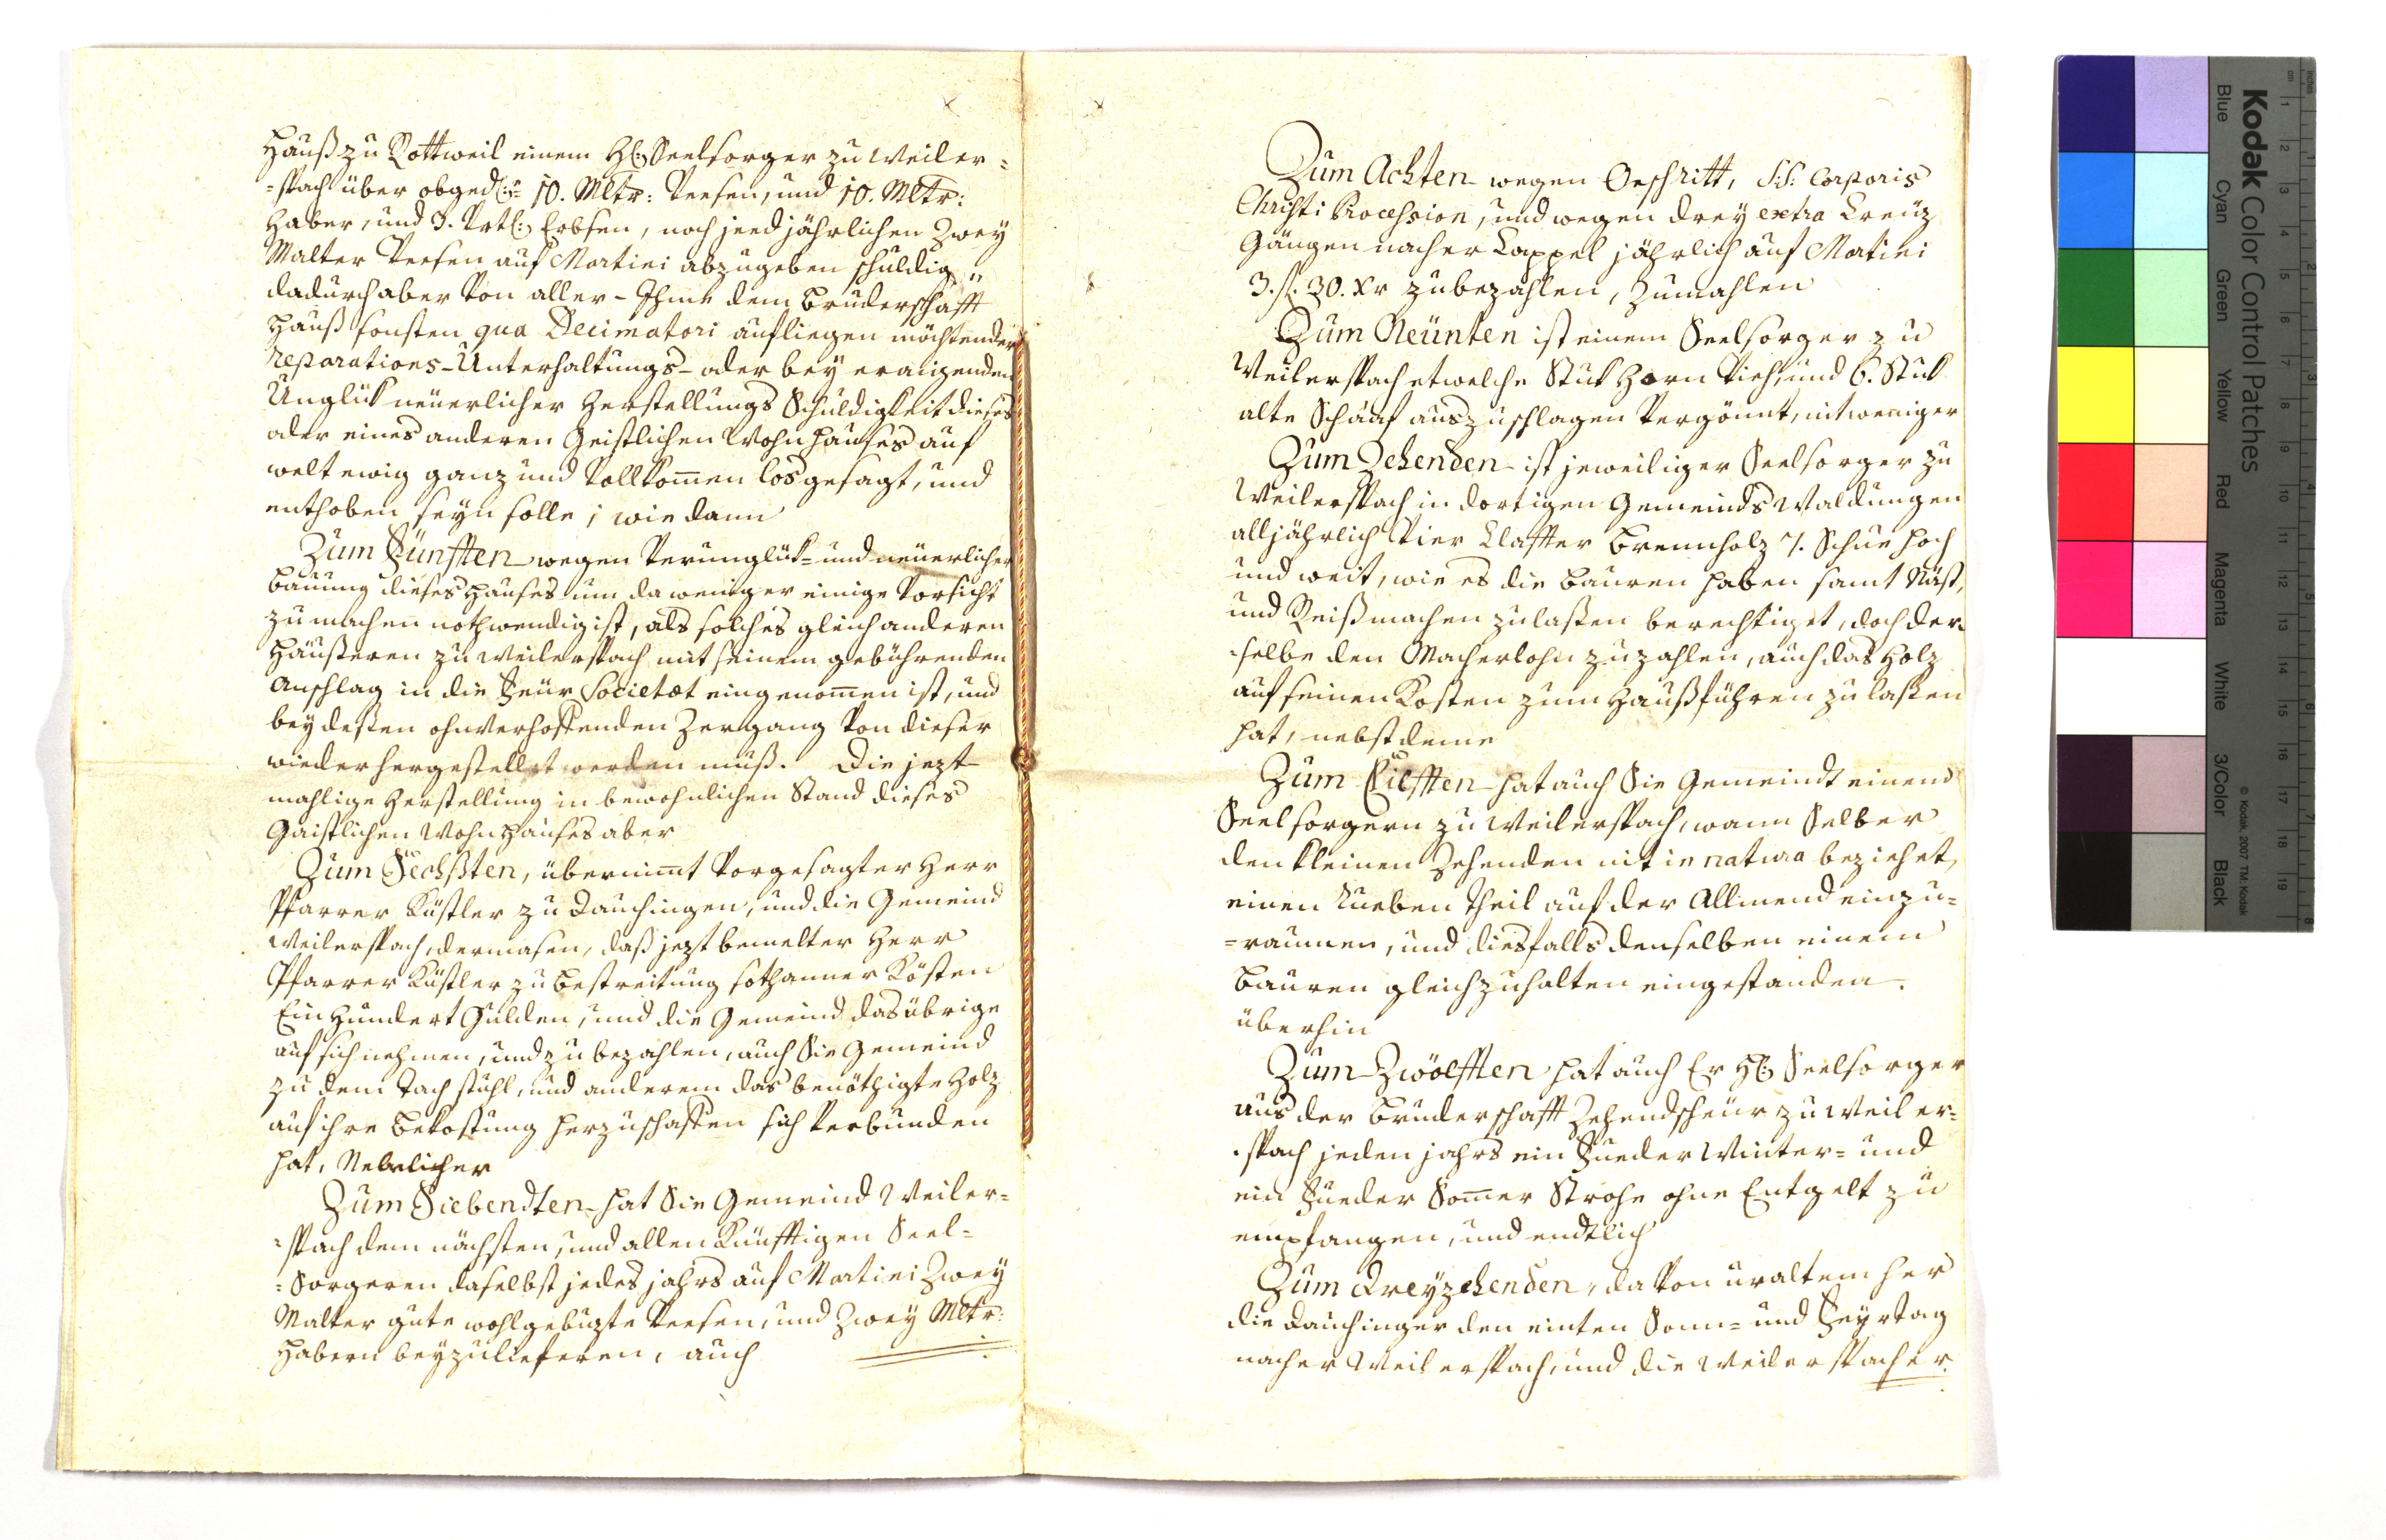 Hauß zu Rottweil einem H: Seelsorger zu Weiler=
=spach über obged: 10. Mltr: Veesen, und 10. Mltr:
Haber, und 3. Vrtl: Erbsen, noch jeed jährlichen Zwey
Malter Veesen auf Martini abzugeben schuldig,
dadurch aber von aller - Ihme dem Bruderschafft
Hauß sonsten qua Decimatori aufliegen möchtender
reparations-Unterhaltungs- oder bey eraigenden
Unglük neüerlicher Herstellungs Schuldigkeit dieses
oder eines anderen Geistlichen Wohnhauses auf
welt ewig ganz und vollkomen losgesagt, und
enthoben seyn solle; wie dann
Zum Fünfften wegen Verunglük= und neüerlicher
Bauung dieses Hauses um da weniger einige Vorsicht
zu machen nothwendig ist, als solches gleich anderen
Häußeren zu Weilerspach mit seinem gebührenden
Anschlag in die Feür Societæt eingenomen ist, und
bey deßen ohnverhoffenden Zergang von dieser
wiederhergestellet werden muß. Die jezt
mahlige Herstellung in bewohnlichen Stand dieses
Gaistlichen Wohnhauses aber
Zum Sechßten, übernimt vorgesagter Herr
Pfarrer Küstler zu Dauchingen, und die Gemeind
Weilerspach, dermasen, daß jezt bemelter Herr
Pfarrer Küstler zu Bestreitung sothanner Kösten
Ein Hundert Gulden, und die Gemeind das übrige
auf sich nehmen, und zu bezahlen, auch Sie Gemeind
zu dem Tach stuhl, und anderem das benöthigte Holz
auf ihre Bekostung herzuschaffen sich verbunden
hat,
Zum Siebendten hat Sie Gemeind Weiler=
=spach dem nächsten, und allen Künfftigen Seel=
=Sorgeren daselbst jedes jahrs auf Martini Zwey
Malter gute wohlgebuzte Veesen, und Zwey Mltr:
Habern beyzulieferen, auch
Zum Achten wegen Oeschritt, S:S: Corporis
Christi Procession, und wegen drey extra Creüz
Gängen nacher Cappel jährlich auf Martini
3. fl. 30. xr zubezahlen, Zumahlen
Zum Neünten ist einem Seelsorger zu
Weilerspach etwelche Stuk Horn Vieh, und 6. Stuk
alte Schaaf auszuschlagen vergönnt, nit weniger
Zum Zehenden ist jeweiliger Seelsorger zu
Weilerspach in dortigen Gemeinds Waldungen
alljährlich vier Klaffter Brennholz 7. Schue hoch
und weit, wie es die Bauren haben samt Näst,
und Reiß machen zulaßen berechtiget, doch der=
=selbe den Macherlohn zuzahlen, auch das Holz
auf seinen Kosten zum Hauß führen zulaßen
hat, nebst deme
Zum Eilfften hat auch Sie Gemeindt einend
Seelsorgern zu Weilerspach, wann Selber
den kleinen Zehenden nit in natura beziehet,
einen Rueben Theil auf der Allmend einzu=
=raumen, und diesfalls denselben einem
Bauren gleichzuhalten eingestanden.
überhin
Zum Zwölfften hat auch Er H: Seelsorger
aus der Bruderschafft Zehendscheür zu Weiler=
=spach jeden jahrs ein Fueder Winter= und
ein Fueder Somer Strohe ohne Entgelt zu
empfangen, und endtlich
Zum Dreyzehenden, da von uraltem her
die Dauchinger den einten Sonn= und Feyrtag
nacher Weilerspach, und die Weilerspacher
Kodak Color Control Patches
Blue Cyan Green Yellow Red Magenta White 3/Color Black
© Kodak, 2007 TM: Kodak
inches 1 2 3 4 5 6 7 8
cm 1 2 3 4 5 6 7 8 9 10 11 12 13 14 15 16 17 18 19